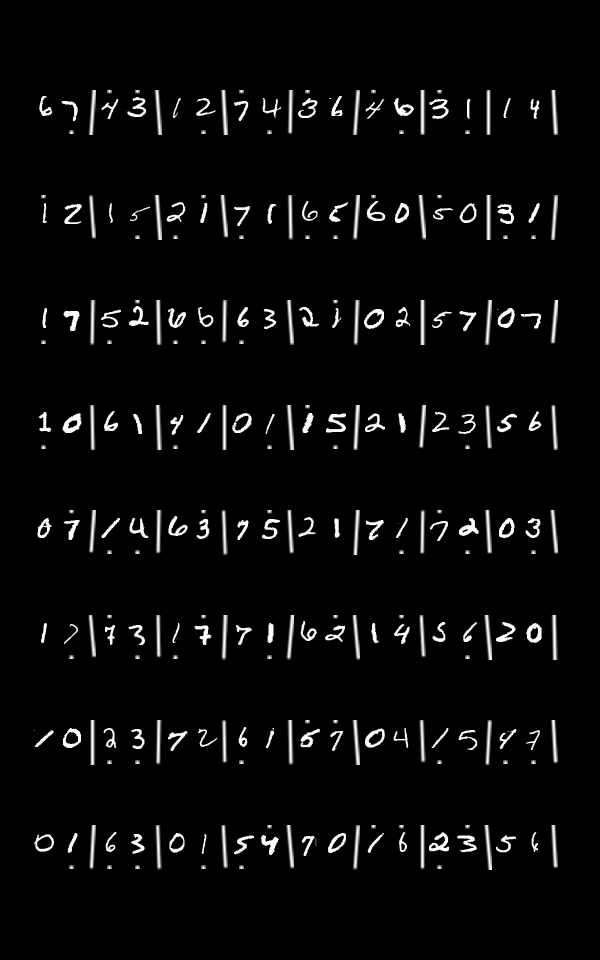 6 7̣ | 4̇ 3̇ | 1 2̣ | 7̇ 4̣ | 3̇ 6̇ | 4̇ 6̣ | 3̇ 1̣ | 1 4 |
1̇ 2 | 1 5̣ | 2̣ 1̇ | 7̣ 1 | 6̣ 5̣ | 6̇ 0 | 5̇ 0 | 3̣ 1̣ |
1̣ 7 | 5 2̇ | 6̣ 6̣ | 6̣ 3 | 2 1̇ | 0 2 | 5 7 | 0 7 |
1̣ 0 | 6 1 | 4̣ 1 | 0 1̣ | 1̇ 5̣ | 2 1 | 2 3̣ | 5 6 |
0 7̇ | 1̣ 4̣ | 6 3̇ | 7 5̇ | 2 1 | 7 1̣ | 7̇ 2̣ | 0 3̣ |
1 7̣ | 7̇ 3̣ | 1̣ 7̇ | 7 1̣ | 6 2̇ | 1 4̇ | 5 6̣ | 2 0 |
1 0 | 2̣ 3̣ | 7 2 | 6̣ 1 | 5̇ 7̇ | 0 4 | 1̣ 5 | 4̣ 7̣ |
0 1̣ | 6̣ 3̣ | 0 1̣ | 5̣ 4̇ | 7 0 | 1̇ 6̇ | 2̣ 3̇ | 5 6 |